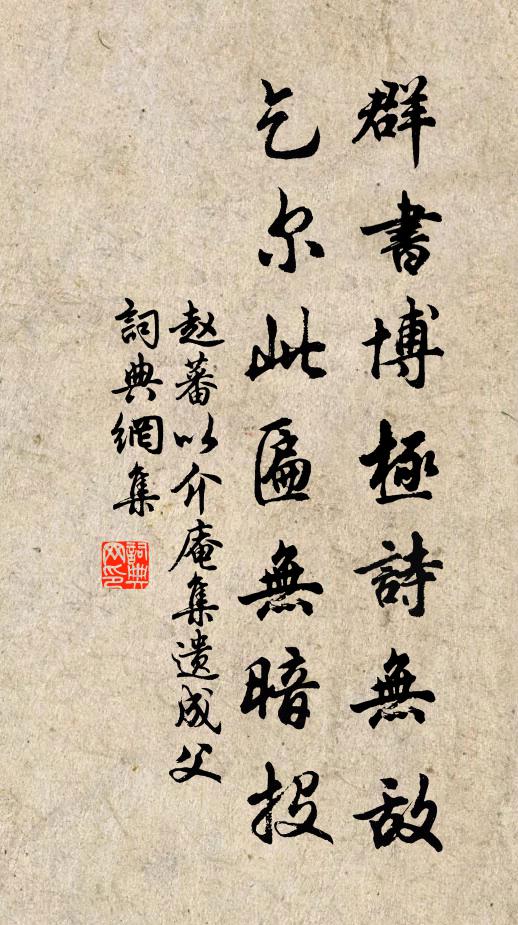 群書博極詩無敌
乞尔此匾無暗投
赵蕃以介庵集遗成父
詞典網集
詞典网印